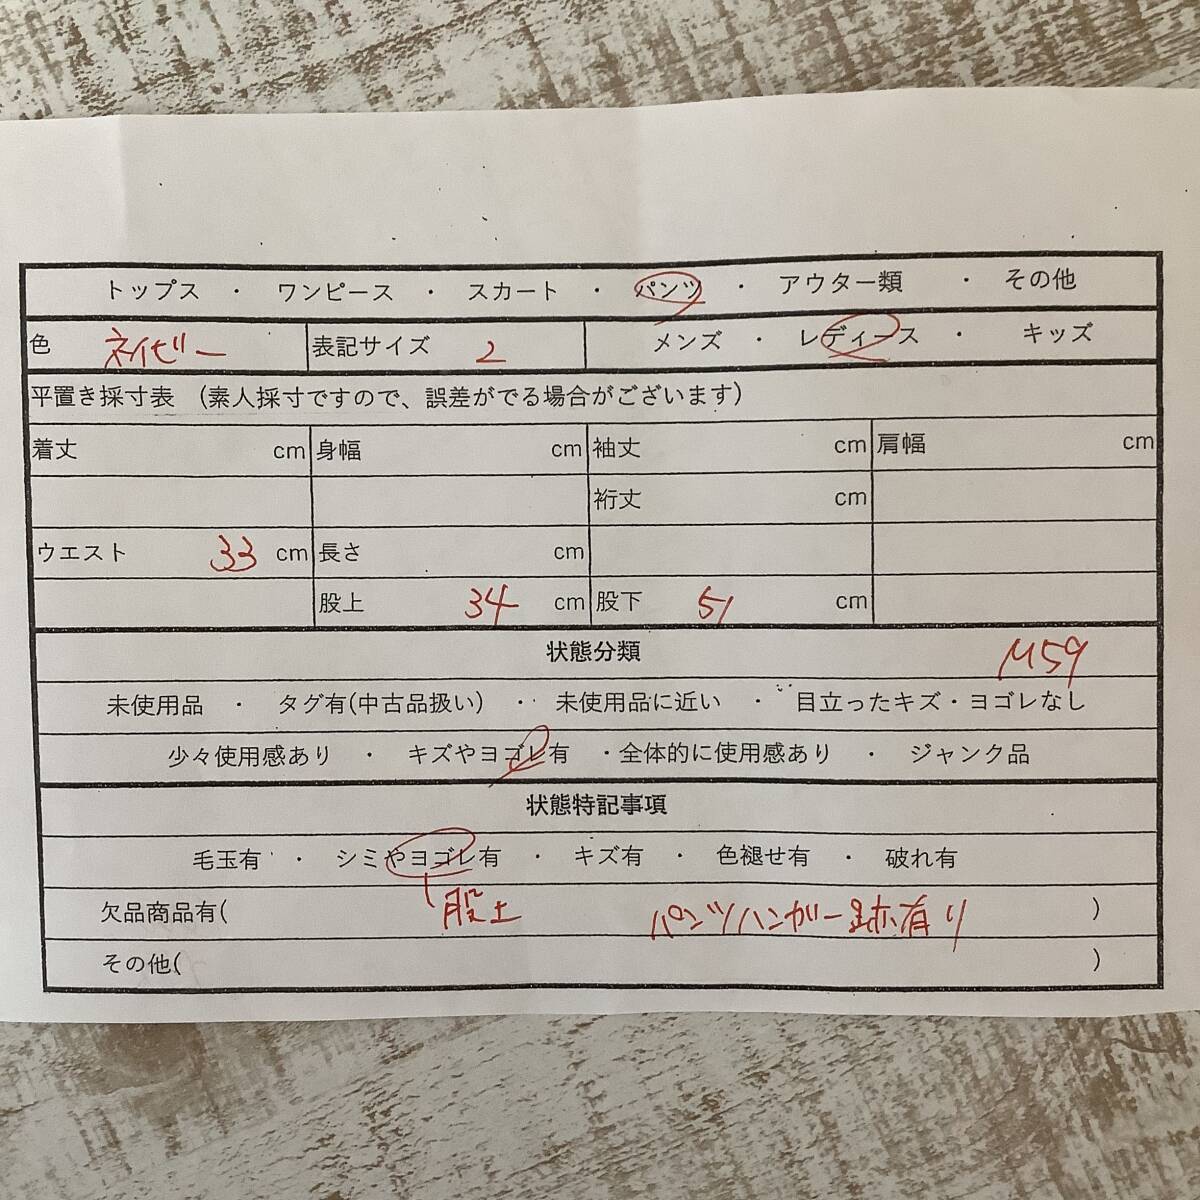 トップス ・ ワンピース ・ スカート ・ パンツ ・ アウター類 ・ その他
色 ネイビー 表記サイズ 2 メンズ ・ レディース ・ キッズ
平置き採寸表 (素人採寸ですので、誤差がでる場合がございます)
着丈 cm 身幅 cm 袖丈 cm 肩幅 cm
裄丈 cm
ウエスト 33 cm 長さ cm
股上 34 cm 股下 51 cm
状態分類 M59
未使用品 ・ タグ有(中古品扱い) ・ 未使用品に近い ・ 目立ったキズ・ヨゴレなし
少々使用感あり ・ キズやヨゴレ有 ・全体的に使用感あり ・ ジャンク品
状態特記事項
毛玉有 ・ シミやヨゴレ有 ・ キズ有 ・ 色褪せ有 ・ 破れ有
欠品商品有( 股上 パンツハンガー跡有り )
その他( )